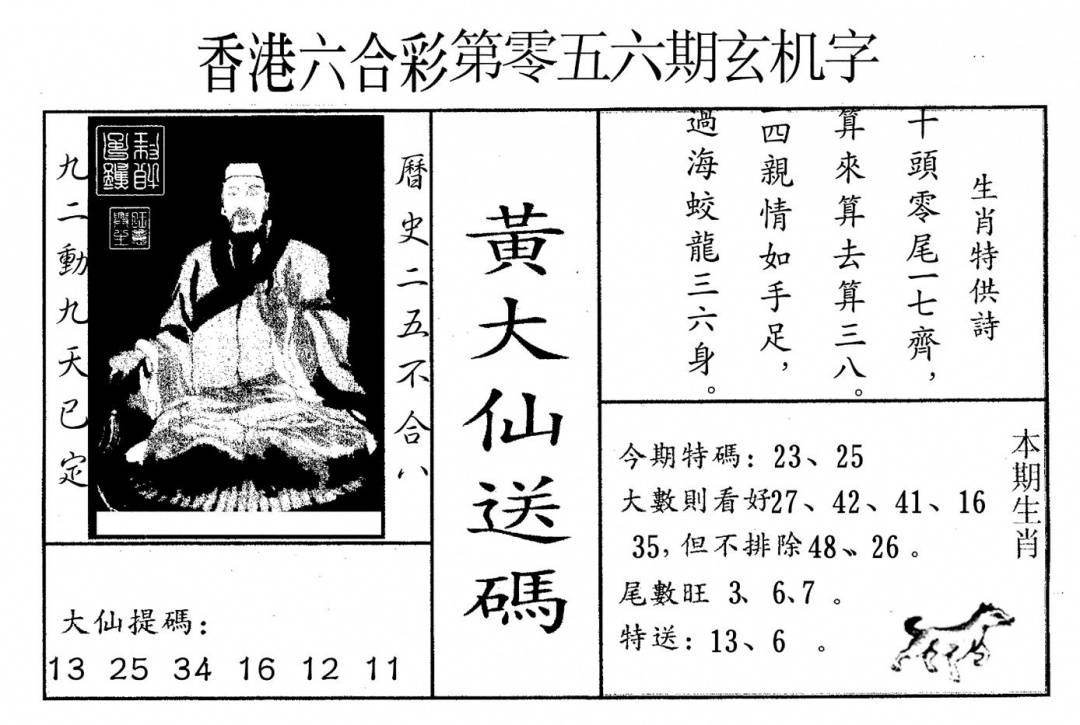 香港六合彩第零五六期玄机字
生肖特供詩
十頭零尾一七齊，
算來算去算三八。
四親情如手足，
過海蛟龍三六身。
黃大仙送碼
曆史二五不合八
九二動九天已定
大仙提碼：
13 25 34 16 12 11
本期生肖
今期特碼：23、25
大數則看好27、42、41、16
35，但不排除48、26。
尾數旺 3、6、7。
特送：13、6 。